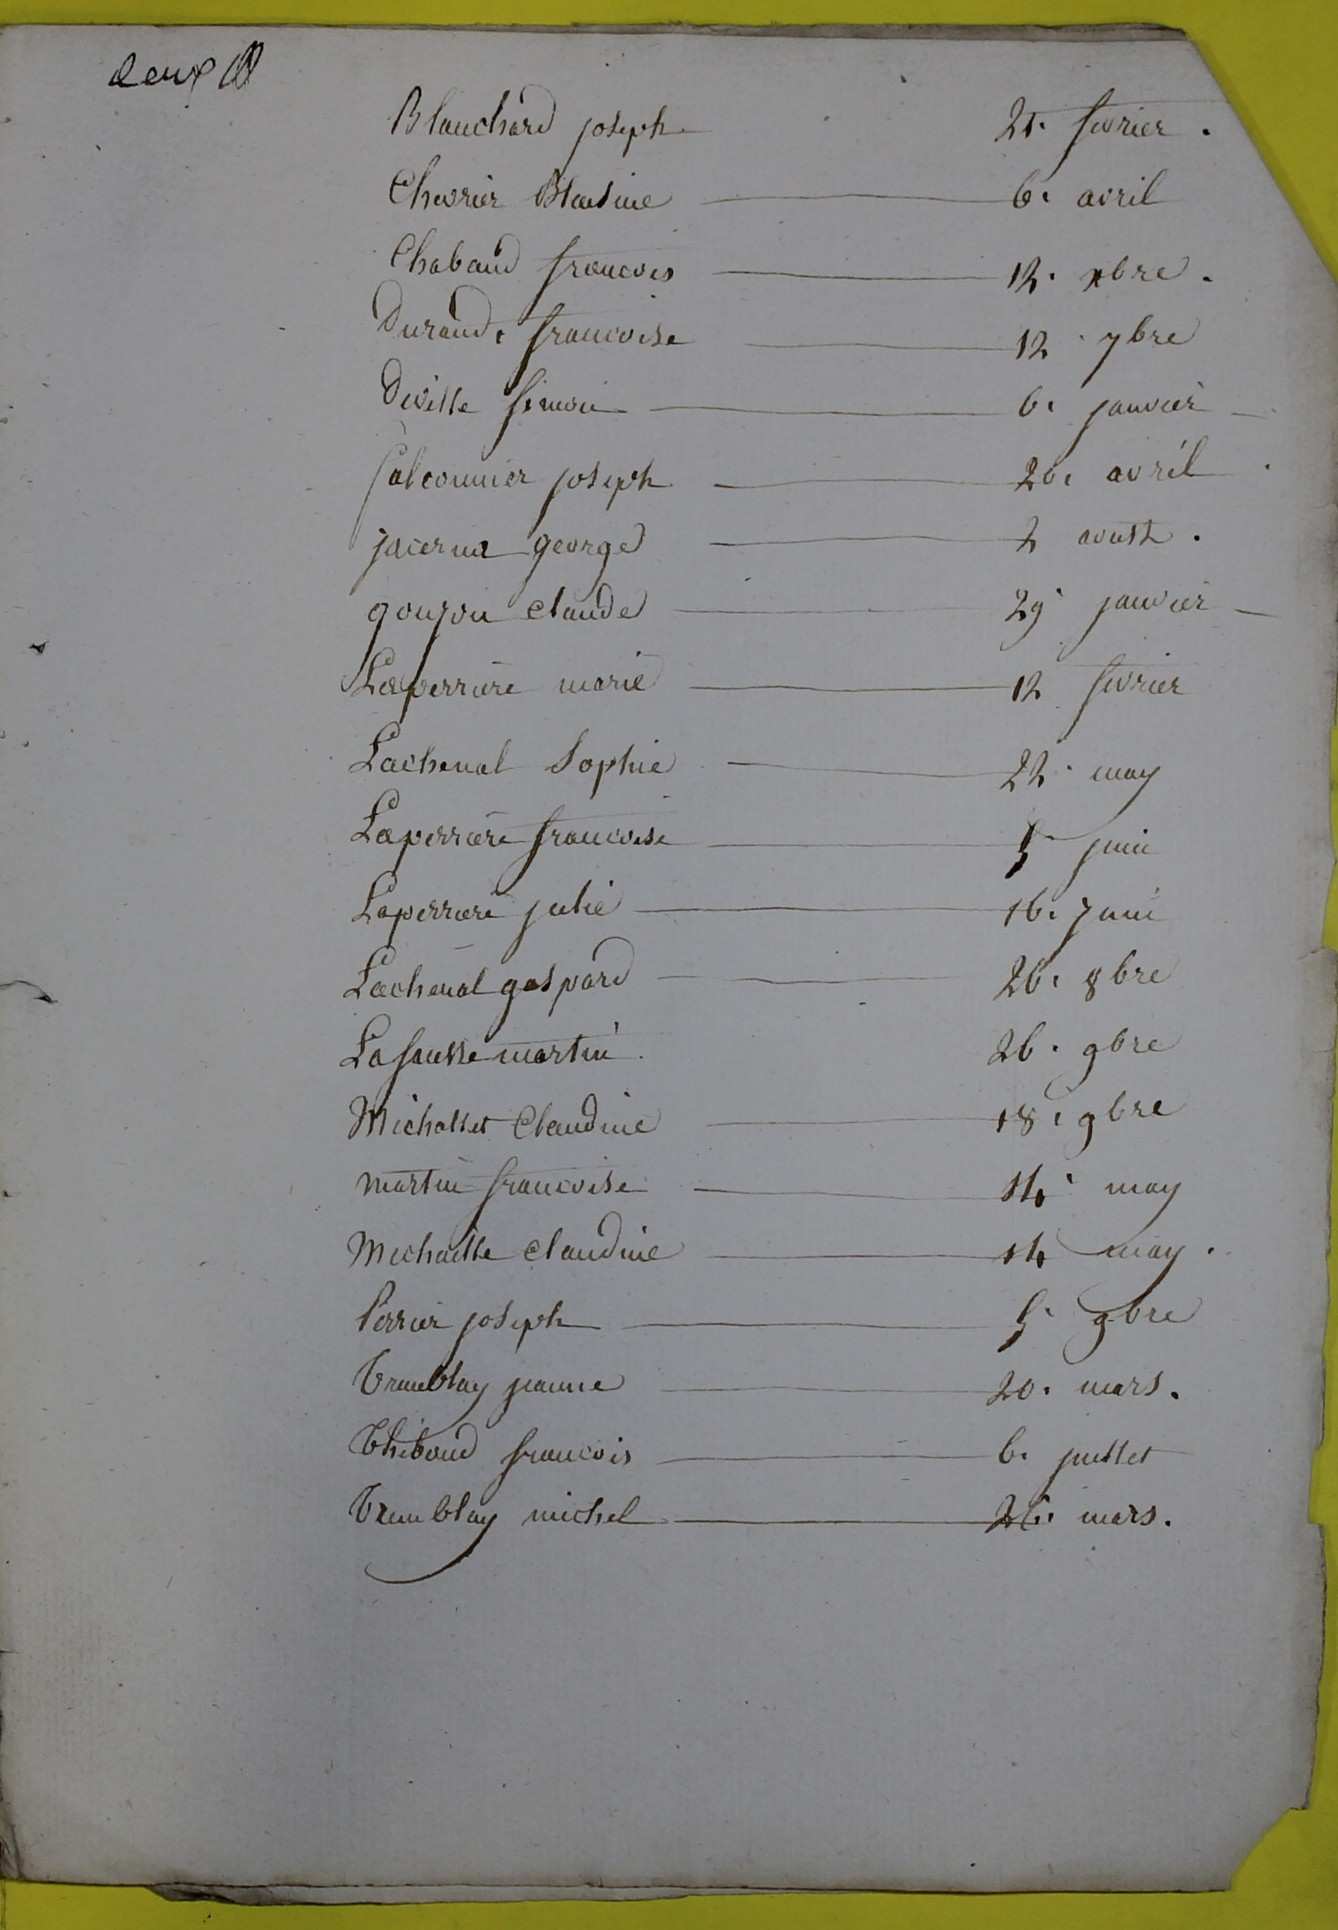 deux
Blanchard joseph 21. fevrier.
Chevrier Blaisine 6. avril
Chabaud francois 12. xbre.
Durand. francoise 12. 7bre
Deville simon 6. janvier
falconnier joseph 26. avril
jacernia george 2 aoust.
goujon claude 29 janvier
Laperriere marie 12 fevrier
Lachenal Sophie 22. may
Laperriere francoise 5 juin
Laperriere julie 16. juin
Lachenal gaspard 26. 8bre
Lasausse martin 26. 9bre
Michallet Claudine 18. 9bre
martin francoise 14. may
Michaille claudine 14 may.
Perrier joseph 5. 9bre
Tremblay jeanne 20. mars.
Thibaud francois 6. juillet
Tremblay michel 26. mars.